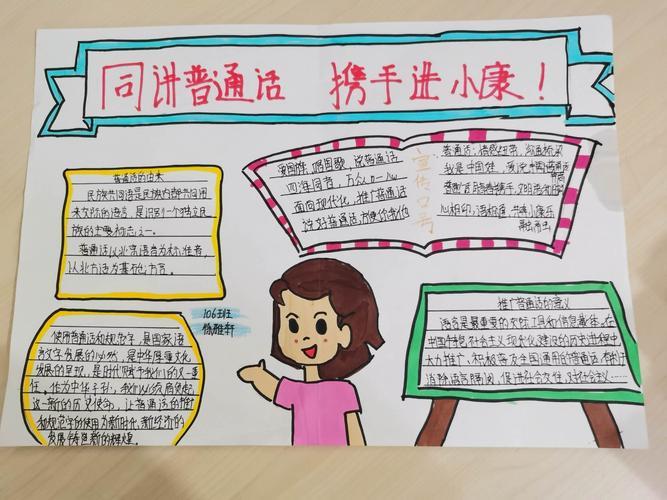 同讲普通话 携手进小康！
普通话的由来
民族共同语是民族内部共同用
来交际的语言，是识别一个独立民
族的主要标志之一。
普通话以北京语音为标准音，
以北方话为基础方言。
爱国旗，唱国歌，说普通话
四海同音，万众一心
面向现代化，推广普通话
说好普通话，方便你我他
宣传口号
普通话：情感纽带，沟通桥梁
我是中国娃，爱说中国普通话
心相印，语相通，共奔小康乐
融融
106班
使用普通话和规范字，是国家语
言文字发展的必然，是中华厚重文化
发展的呈现，是时代赋予我们的又一重
任，作为中华子孙，我们必须肩负起
这一新的历史使命，让普通话的推广
和规范字的使用为新时代、新经济的
发展铸造新的辉煌。
推广普通话的意义
语言是最重要的交际工具和信息载体。在
中国特色社会主义现代化建设的历史进程中
大力推广、积极普及全国通用的普通话，有利于
消除语言隔阂，促进社会交往，对社会主义……